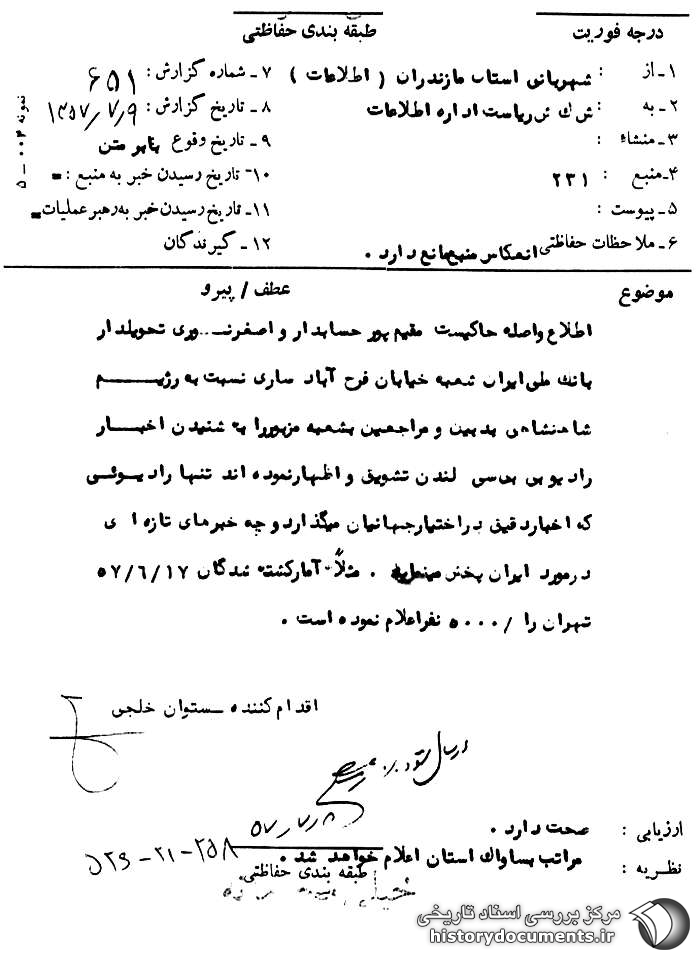 درجه فوریت طبقه بندی حفاظتی
۱ـ از : شهربانی استان مازندران ( اطلاعات ) ۷ ـ شماره گزارش : ۶۵۱
۲ـ به : ش ک ش ریاست اداره اطلاعات ۸ ـ تاریخ گزارش : ۱۳۵۷/۷/۹
۳ـ منشاء : ۹ ـ تاریخ وقوع بنابر متن
۴ـ منبع : ۲۳۱ ۱۰ـ تاریخ رسیدن خبر به منبع : =
۵ـ پیوست : ۱۱ـ تاریخ رسیدن خبر به رهبر عملیات =
۶ـ ملاحظات حفاظتی انعکاس منبع مانع دارد . ۱۲ ـ گیرندگان
نمونه ۰۰۴ ـ ۵
موضوع عطف / پیرو
اطلاع واصله حاکیست مقیم پور حسابدار و اصغر نوری تحویلدار
بانک ملی ایران شعبه خیابان فرح آباد ساری نسبت به رژیم
شاهنشاهی بدبین و مراجعین بشعبه مزبور را به شنیدن اخبار
رادیو بی بی سی لندن تشویق و اظهار نموده اند تنها رادیوئی
که اخبار دقیق در اختیار جهانیان میگذارد و چه خبرهای تازه ای
در مورد ایران پخش مینماید . مثلاً آمار کشته شدگان ۵۷/۶/۱۷
تهران را /۵۰۰۰ نفر اعلام نموده است .
اقدام کننده ـ ستوان خلجی
ارسال شود
۵۷/۷/۸
ارزیابی : صحت دارد .
نظریه : مراتب بساواک استان اعلام خواهد شد .
۲۵۸ - ۲۱ - ۵۲۶
طبقه بندی حفاظتی
مرکز بررسی اسناد تاریخی
historydocuments.ir